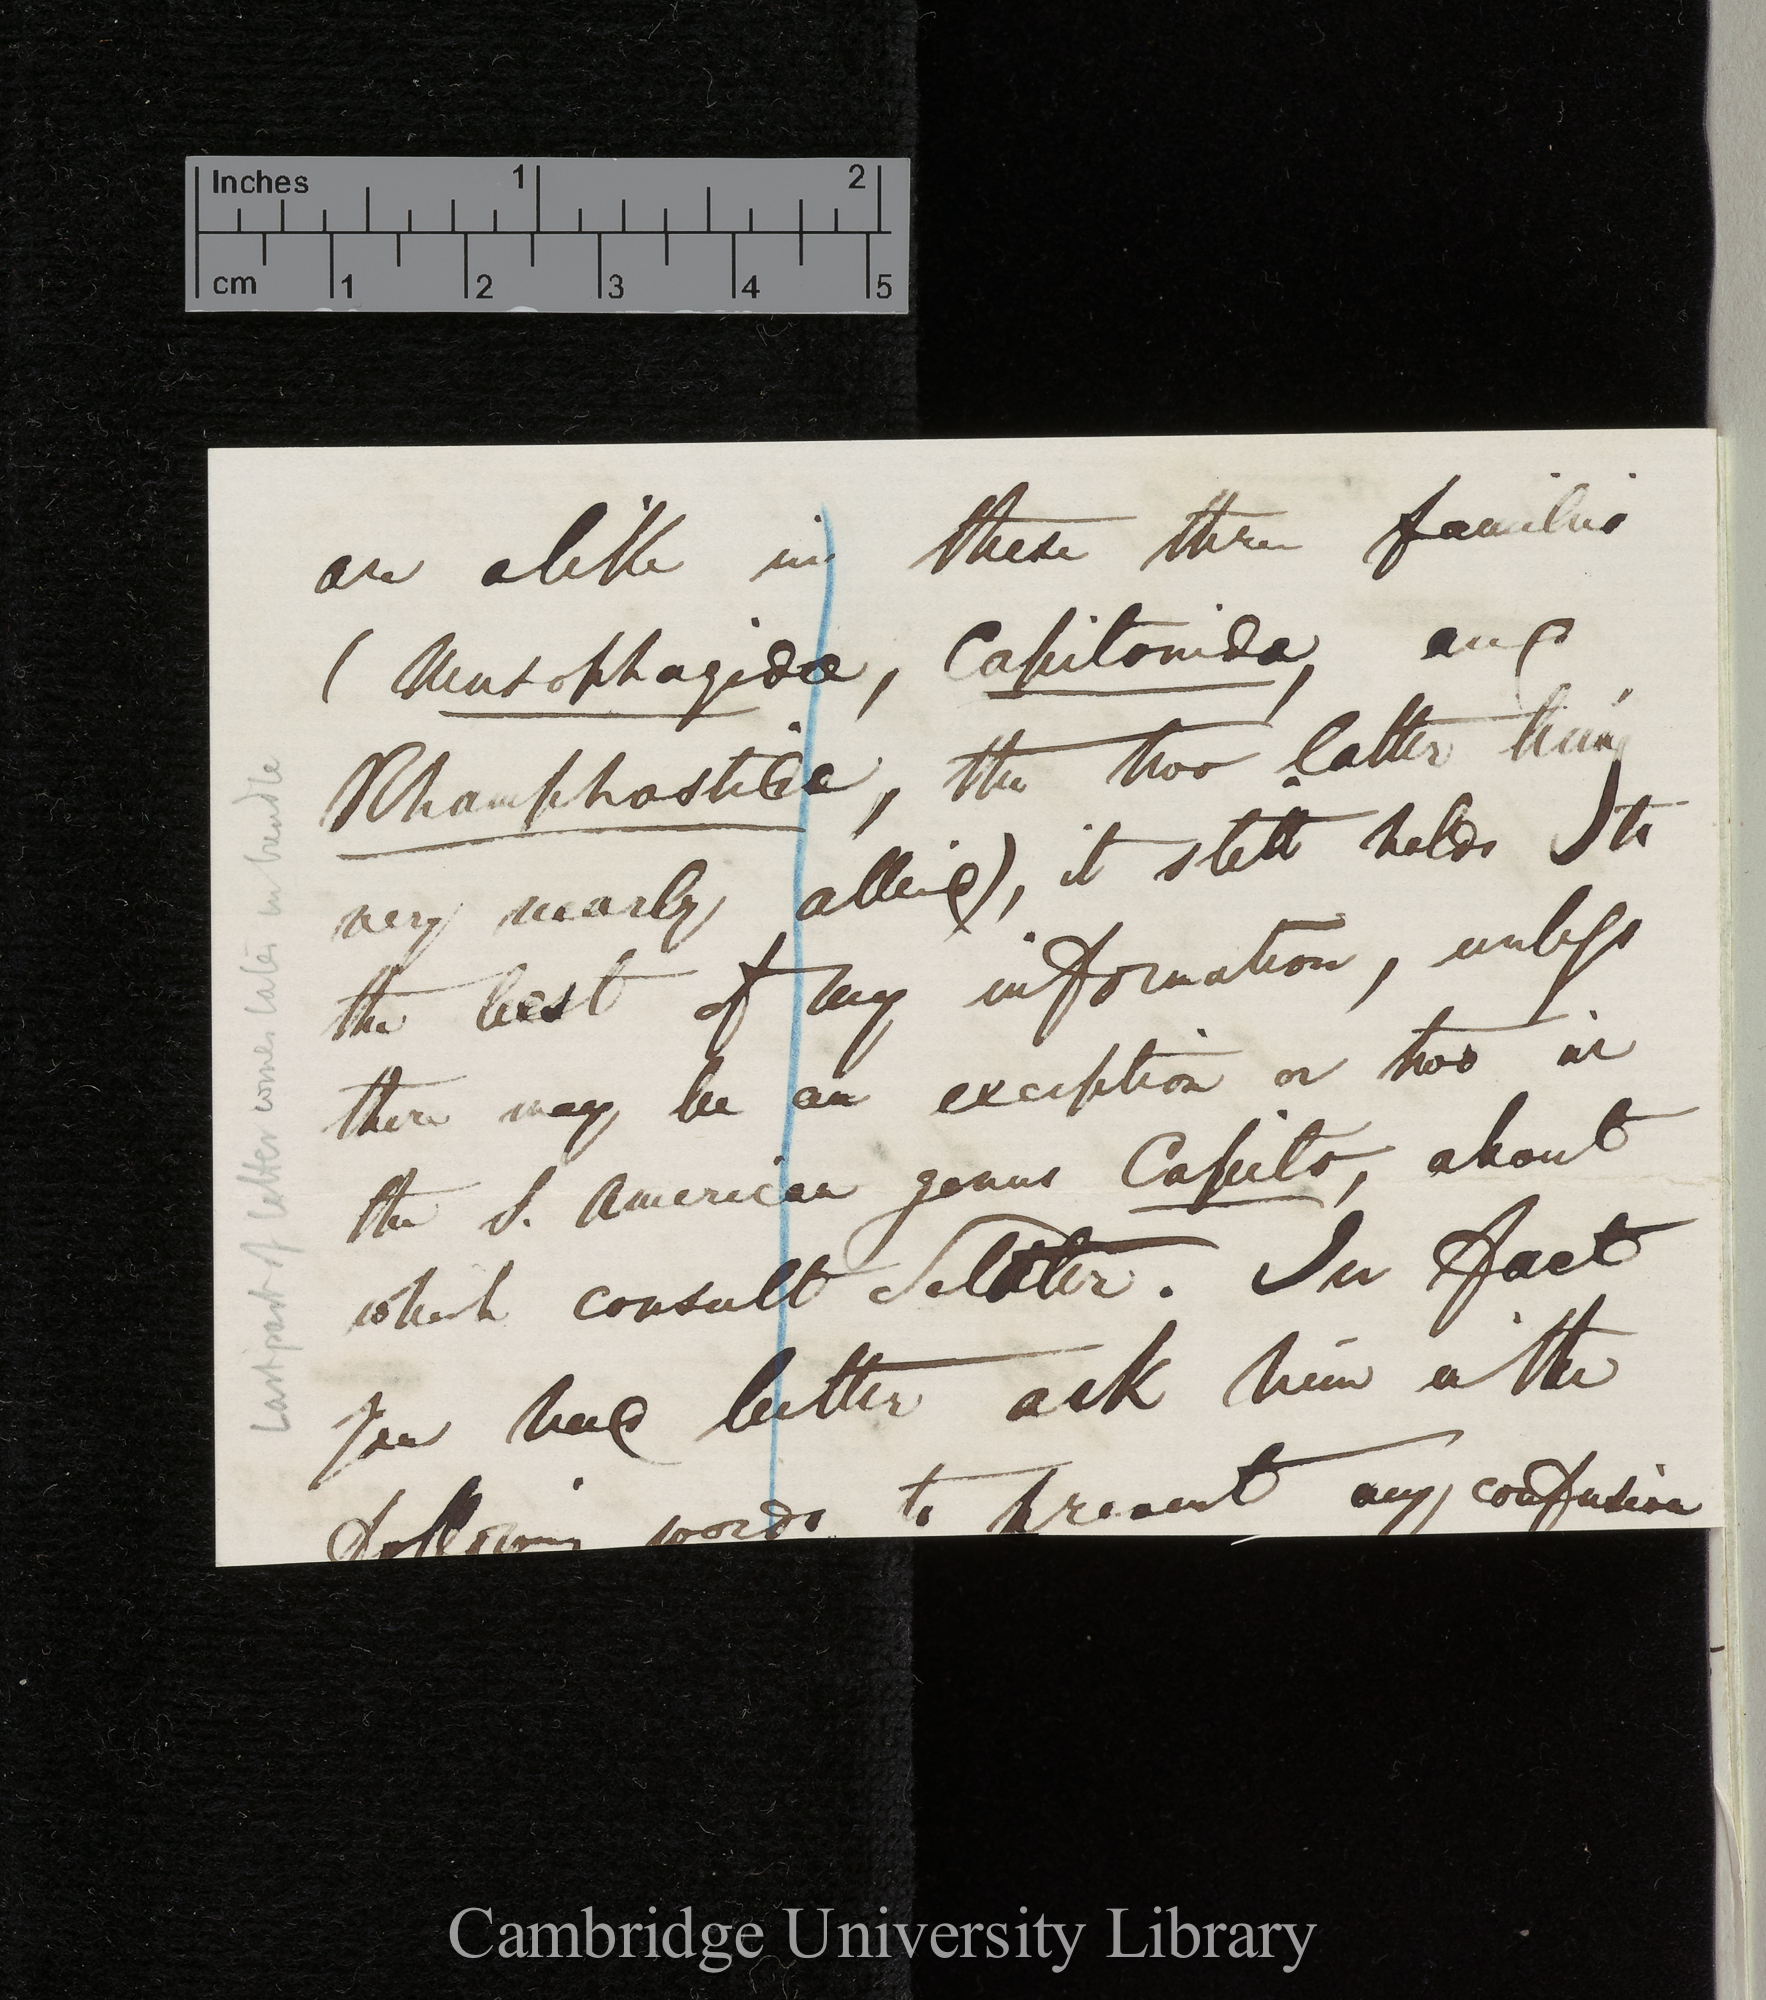 Inches 1 2
cm 1 2 3 4 5
are alike in these three families
(Musophagidae, Capitonidae, and
Rhamphastidae, the two latter being
very nearly allied), it still holds to
the best of my information, unless
there may be an exception or two in
the S. American genus Capito, about
which consult Sclater. In fact
you had better ask him in the
following words to prevent any confusion
Last part of letter comes later in bundle
Cambridge University Library